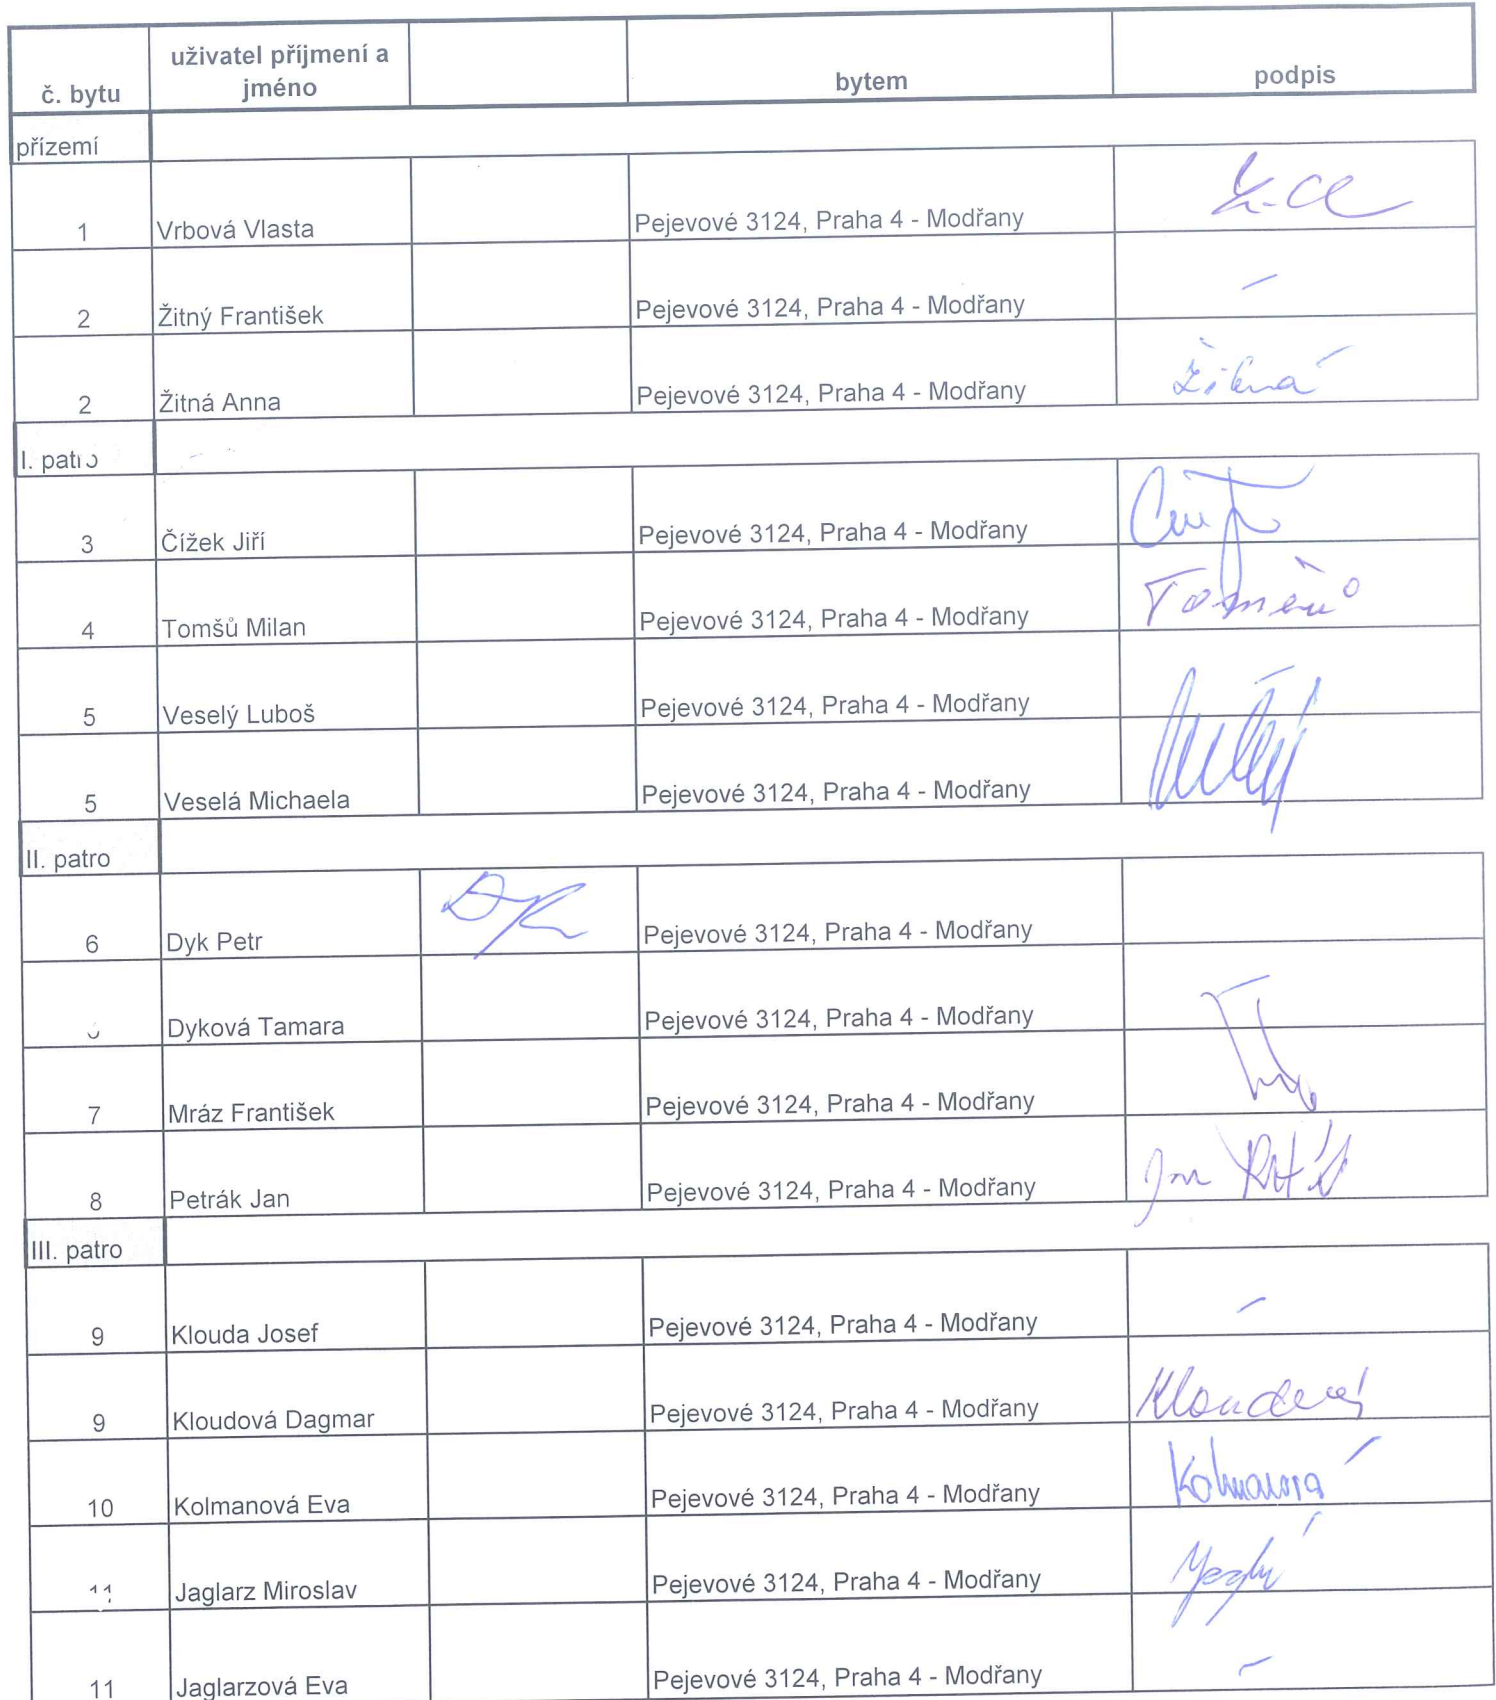 č. bytu uživatel příjmení a jméno bytem podpis
přízemí
1 Vrbová Vlasta Pejevové 3124, Praha 4 - Modřany
2 Žitný František Pejevové 3124, Praha 4 - Modřany –
2 Žitná Anna Pejevové 3124, Praha 4 - Modřany Žitná
I. patro
3 Čížek Jiří Pejevové 3124, Praha 4 - Modřany
4 Tomšů Milan Pejevové 3124, Praha 4 - Modřany
5 Veselý Luboš Pejevové 3124, Praha 4 - Modřany
5 Veselá Michaela Pejevové 3124, Praha 4 - Modřany
II. patro
6 Dyk Petr Dyk Pejevové 3124, Praha 4 - Modřany
Dyková Tamara Pejevové 3124, Praha 4 - Modřany
7 Mráz František Pejevové 3124, Praha 4 - Modřany
8 Petrák Jan Pejevové 3124, Praha 4 - Modřany Jan Petrák
III. patro
9 Klouda Josef Pejevové 3124, Praha 4 - Modřany –
9 Kloudová Dagmar Pejevové 3124, Praha 4 - Modřany Kloudová
10 Kolmanová Eva Pejevové 3124, Praha 4 - Modřany Kolmanová
11 Jaglarz Miroslav Pejevové 3124, Praha 4 - Modřany
11 Jaglarzová Eva Pejevové 3124, Praha 4 - Modřany –